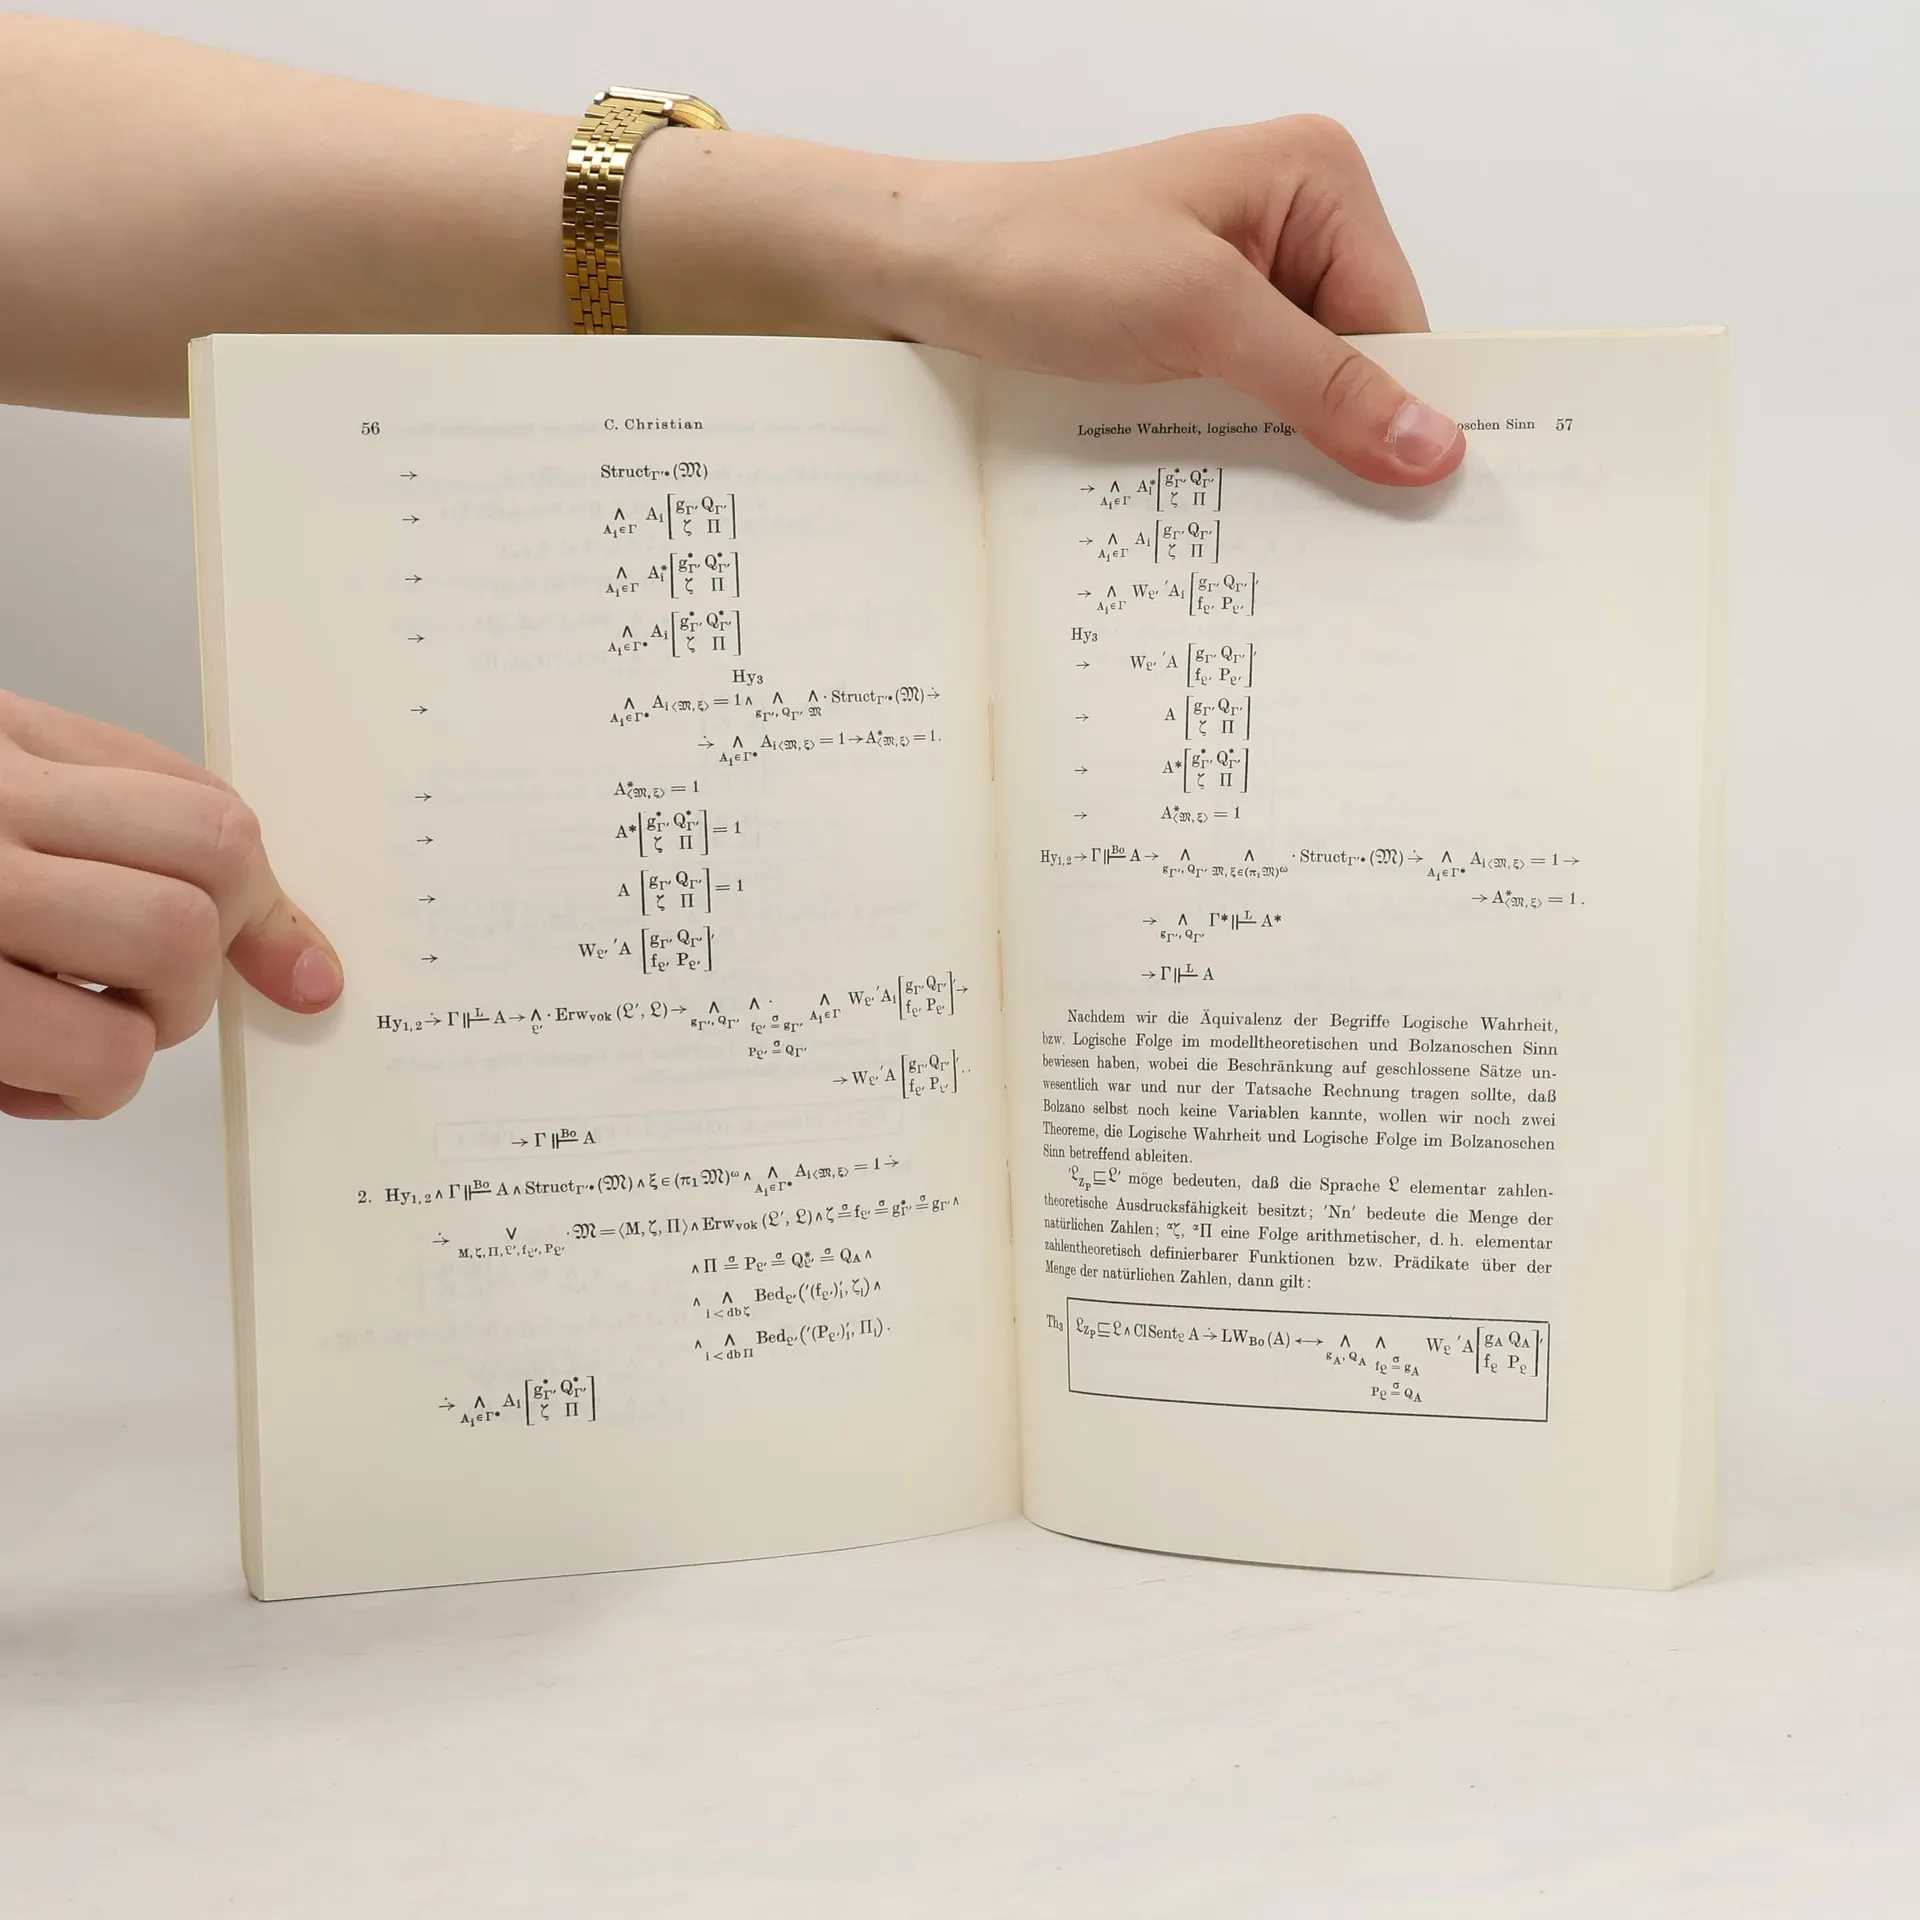 56 C. Christian
→ Struct_Γ'* (𝔐)
→ ∧_{A_i∈Γ} A_i [g_Γ' Q_Γ' / ζ Π]
→ ∧_{A_i∈Γ} A_i* [g*_Γ' Q*_Γ' / ζ Π]
→ ∧_{A_i∈Γ*} A_i [g*_Γ' Q*_Γ' / ζ Π]
Hy₃
→ ∧_{A_i∈Γ*} A_i⟨𝔐, ξ⟩ = 1 ∧ ∧_{g_Γ', Q_Γ'} ∧_𝔐 · Struct_Γ'* (𝔐) →̇
→̇ ∧_{A_i∈Γ*} A_i⟨𝔐, ξ⟩ = 1 → A*⟨𝔐, ξ⟩ = 1.
→ A*⟨𝔐, ξ⟩ = 1
→ A* [g*_Γ' Q*_Γ' / ζ Π] = 1
→ A [g_Γ' Q_Γ' / ζ Π] = 1
→ W_𝔏' 'A [g_Γ' Q_Γ' / f_𝔏' P_𝔏']'
Hy₁,₂ →̇ Γ ||=^L A → ∧_𝔏' · Erw_vok (𝔏', 𝔏) → ∧_{g_Γ', Q_Γ'} ∧_{f_𝔏' ≗^σ g_Γ', P_𝔏' ≗^σ Q_Γ'} · ∧_{A_i∈Γ} W_𝔏' 'A_i [g_Γ' Q_Γ' / f_𝔏' P_𝔏']' →
→ W_𝔏' 'A [g_Γ' Q_Γ' / f_𝔏' P_𝔏']' ..
→ Γ ||=^Bo A
2. Hy₁,₂ ∧ Γ ||=^Bo A ∧ Struct_Γ'* (𝔐) ∧ ξ ∈ (π₁ 𝔐)^ω ∧ ∧_{A_i∈Γ*} A_i⟨𝔐, ξ⟩ = 1 →̇
→̇ ∨_{M, ζ, Π, 𝔏', f_𝔏', P_𝔏'} · 𝔐 = ⟨M, ζ, Π⟩ ∧ Erw_vok (𝔏', 𝔏) ∧ ζ =^σ f_𝔏' =^σ g*_Γ' =^σ g_Γ' ∧
∧ Π =^σ P_𝔏' =^σ Q*_𝔏' =^σ Q_A ∧
∧ ∧_{i < db ζ} Bed_𝔏' ('(f_𝔏')'_i, ζ_i) ∧
∧ ∧_{i < db Π} Bed_𝔏' ('(P_𝔏')'_i, Π_i) .
→̇ ∧_{A_i∈Γ*} A_i [g*_Γ' Q*_Γ' / ζ Π]
Logische Wahrheit, logische oschen Sinn 57
→ ∧_{A_i∈Γ} A_i* [g*_Γ' Q*_Γ' / ζ Π]
→ ∧_{A_i∈Γ} A_i [g_Γ' Q_Γ' / ζ Π]
→ ∧_{A_i∈Γ} W_𝔏' 'A_i [g_Γ' Q_Γ' / f_𝔏' P_𝔏']'
Hy₃
→ W_𝔏' 'A [g_Γ' Q_Γ' / f_𝔏' P_𝔏']'
→ A [g_Γ' Q_Γ' / ζ Π]
→ A* [g*_Γ' Q*_Γ' / ζ Π]
→ A*⟨𝔐, ξ⟩ = 1
Hy₁,₂ → Γ ||=^Bo A → ∧_{g_Γ', Q_Γ'} ∧_{𝔐, ξ∈(π₁ 𝔐)^ω} · Struct_Γ'* (𝔐) →̇ ∧_{A_i∈Γ*} A_i⟨𝔐, ξ⟩ = 1 →
→ A*⟨𝔐, ξ⟩ = 1 .
→ ∧_{g_Γ', Q_Γ'} Γ* ||=^L A*
→ Γ ||=^L A
Nachdem wir die Äquivalenz der Begriffe Logische Wahrheit,
bzw. Logische Folge im modelltheoretischen und Bolzanoschen Sinn
bewiesen haben, wobei die Beschränkung auf geschlossene Sätze un-
wesentlich war und nur der Tatsache Rechnung tragen sollte, daß
Bolzano selbst noch keine Variablen kannte, wollen wir noch zwei
Theoreme, die Logische Wahrheit und Logische Folge im Bolzanoschen
Sinn betreffend ableiten.
'𝔏_Zp ⊑ 𝔏' möge bedeuten, daß die Sprache 𝔏 elementar zahlen-
theoretische Ausdrucksfähigkeit besitzt; 'Nn' bedeute die Menge der
natürlichen Zahlen; ^αζ, ^αΠ eine Folge arithmetischer, d. h. elementar
zahlentheoretisch definierbarer Funktionen bzw. Prädikate über der
Menge der natürlichen Zahlen, dann gilt:
Th₃ 𝔏_Zp ⊑ 𝔏 ∧ ClSent_𝔏 A →̇ LW_Bo (A) ↔ ∧_{g_A, Q_A} ∧_{f_𝔏 =^σ g_A, P_𝔏 =^σ Q_A} W_𝔏 'A [g_A Q_A / f_𝔏 P_𝔏]'